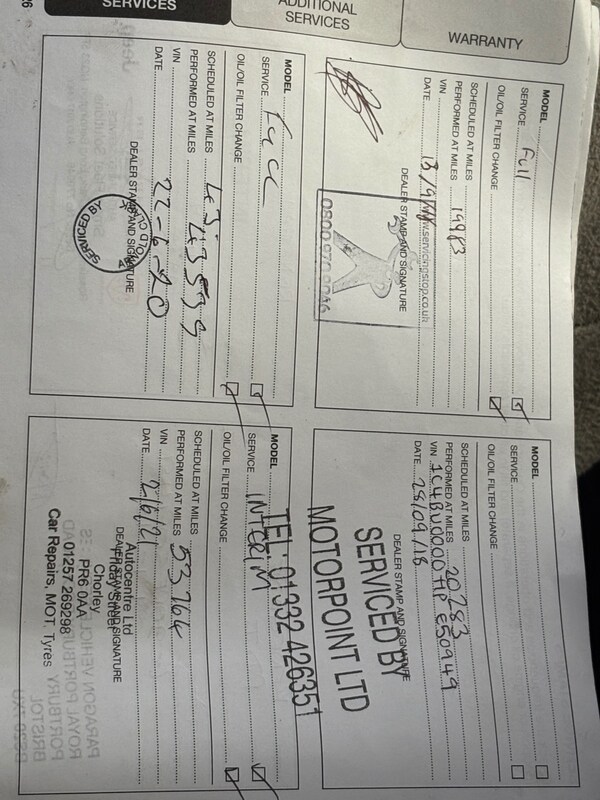 SERVICES
ADDITIONAL
SERVICES
WARRANTY
MODEL
SERVICE Full
OIL/OIL FILTER CHANGE
SCHEDULED AT MILES
PERFORMED AT MILES 19983
VIN
DATE
DEALER STAMP AND SIGNATURE
www.servicingstop.co.uk
MODEL
SERVICE
OIL/OIL FILTER CHANGE
SCHEDULED AT MILES
PERFORMED AT MILES 20283
VIN 1C4BU0000HPE50949
DATE 28/09/18
DEALER STAMP AND SIGNATURE
SERVICED BY
MOTORPOINT LTD
TEL: 01332 426351
MODEL
SERVICE Full
OIL/OIL FILTER CHANGE
SCHEDULED AT MILES
PERFORMED AT MILES
VIN
DATE 22-6-20
DEALER STAMP AND SIGNATURE
SERVICED BY
MODEL
SERVICE INTERIM
OIL/OIL FILTER CHANGE
SCHEDULED AT MILES
PERFORMED AT MILES 53764
VIN
DATE 2/6/21
DEALER STAMP AND SIGNATURE
Autocentre Ltd
Friday Street
Chorley
PR6 0AA
01257 269298
Car Repairs, MOT, Tyres